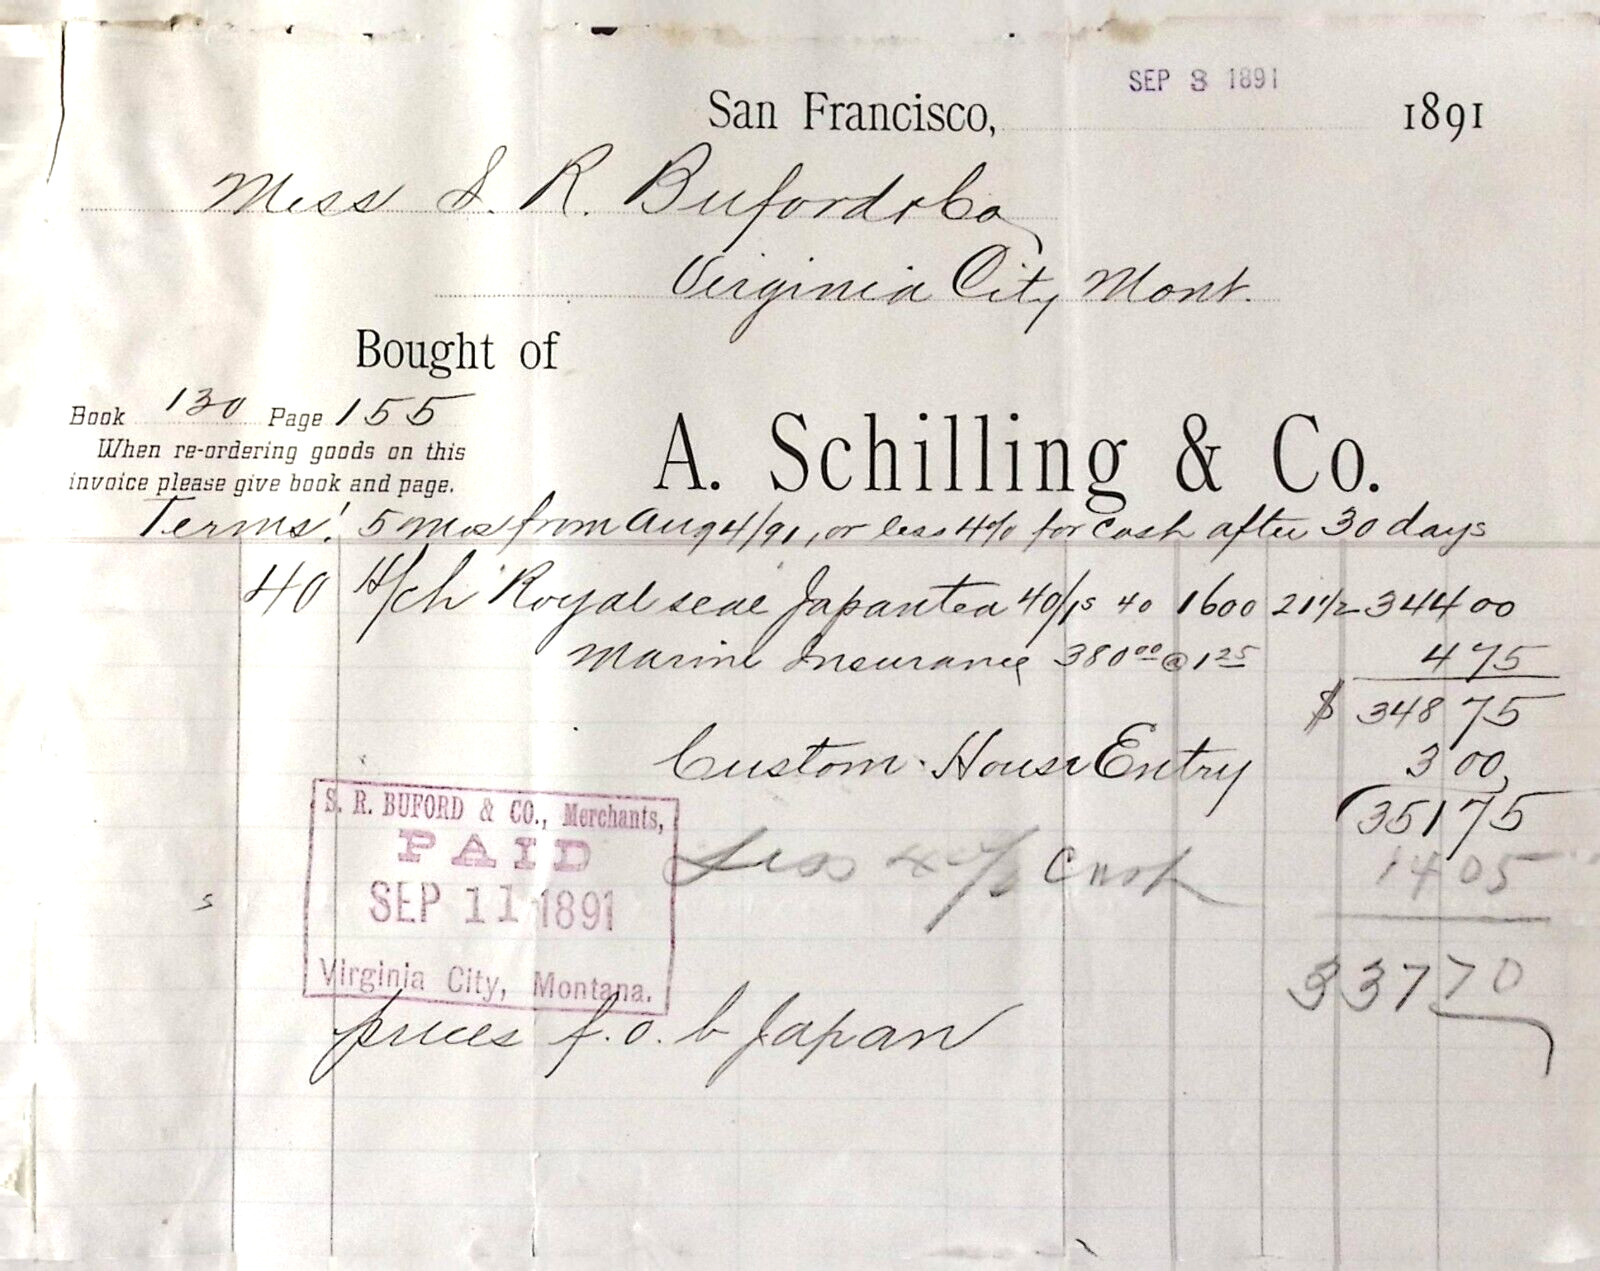 SEP 8 1891
San Francisco, 1891
Mess S. R. Buford & Co
Virginia City Mont.
Bought of
Book 130 Page 155
When re-ordering goods on this
invoice please give book and page.
A. Schilling & Co.
Terms! 5 mos from Aug 4/91, or less 4% for cash after 30 days
40 H/ch "Royal seal Japan tea 40/1s 40 1600 21 1/2 344 00
Marine Insurance 380 00 @ 1 25 4 75
$ 348 75
Custom House Entry 3 00
351 75
Less 4% Cash 14 05
337 70
S. R. BUFORD & CO., Merchants,
PAID
SEP 11 1891
Virginia City, Montana.
prices f. o. b Japan